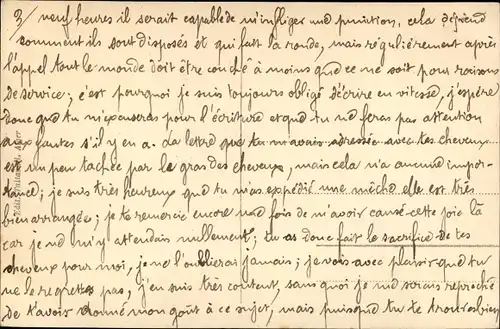 3/ neuf heures il serait capable de m'infliger une punition, cela dépend
comment ils sont disposés et qui fait la ronde, mais régulièrement après
l'appel tout le monde doit être couché à moins que ce ne soit pour raisons
de service; c'est pourquoi je suis toujours obligé d'écrire en vitesse, j'espère
donc que tu m'excuseras pour l'écriture et que tu ne feras pas attention
aux fautes s'il y en a. La lettre que tu m'avais adressée avec tes cheveux
est un peu tachée par le gras des cheveux, mais cela n'a aucune impor-
tance; je suis très heureux que tu m'as expédié une mèche elle est très
bien arrangée; je te remercie encore une fois de m'avoir causé cette joie là
car je ne m'y attendais nullement; tu as donc fait le sacrifice de tes
cheveux pour moi, je ne l'oublierai jamais; je vois avec plaisir que tu
ne le regrettes pas, j'en suis très content, sans quoi je me serais reproché
de t'avoir donné mon goût à ce sujet, mais puisque tu te trouves bien,